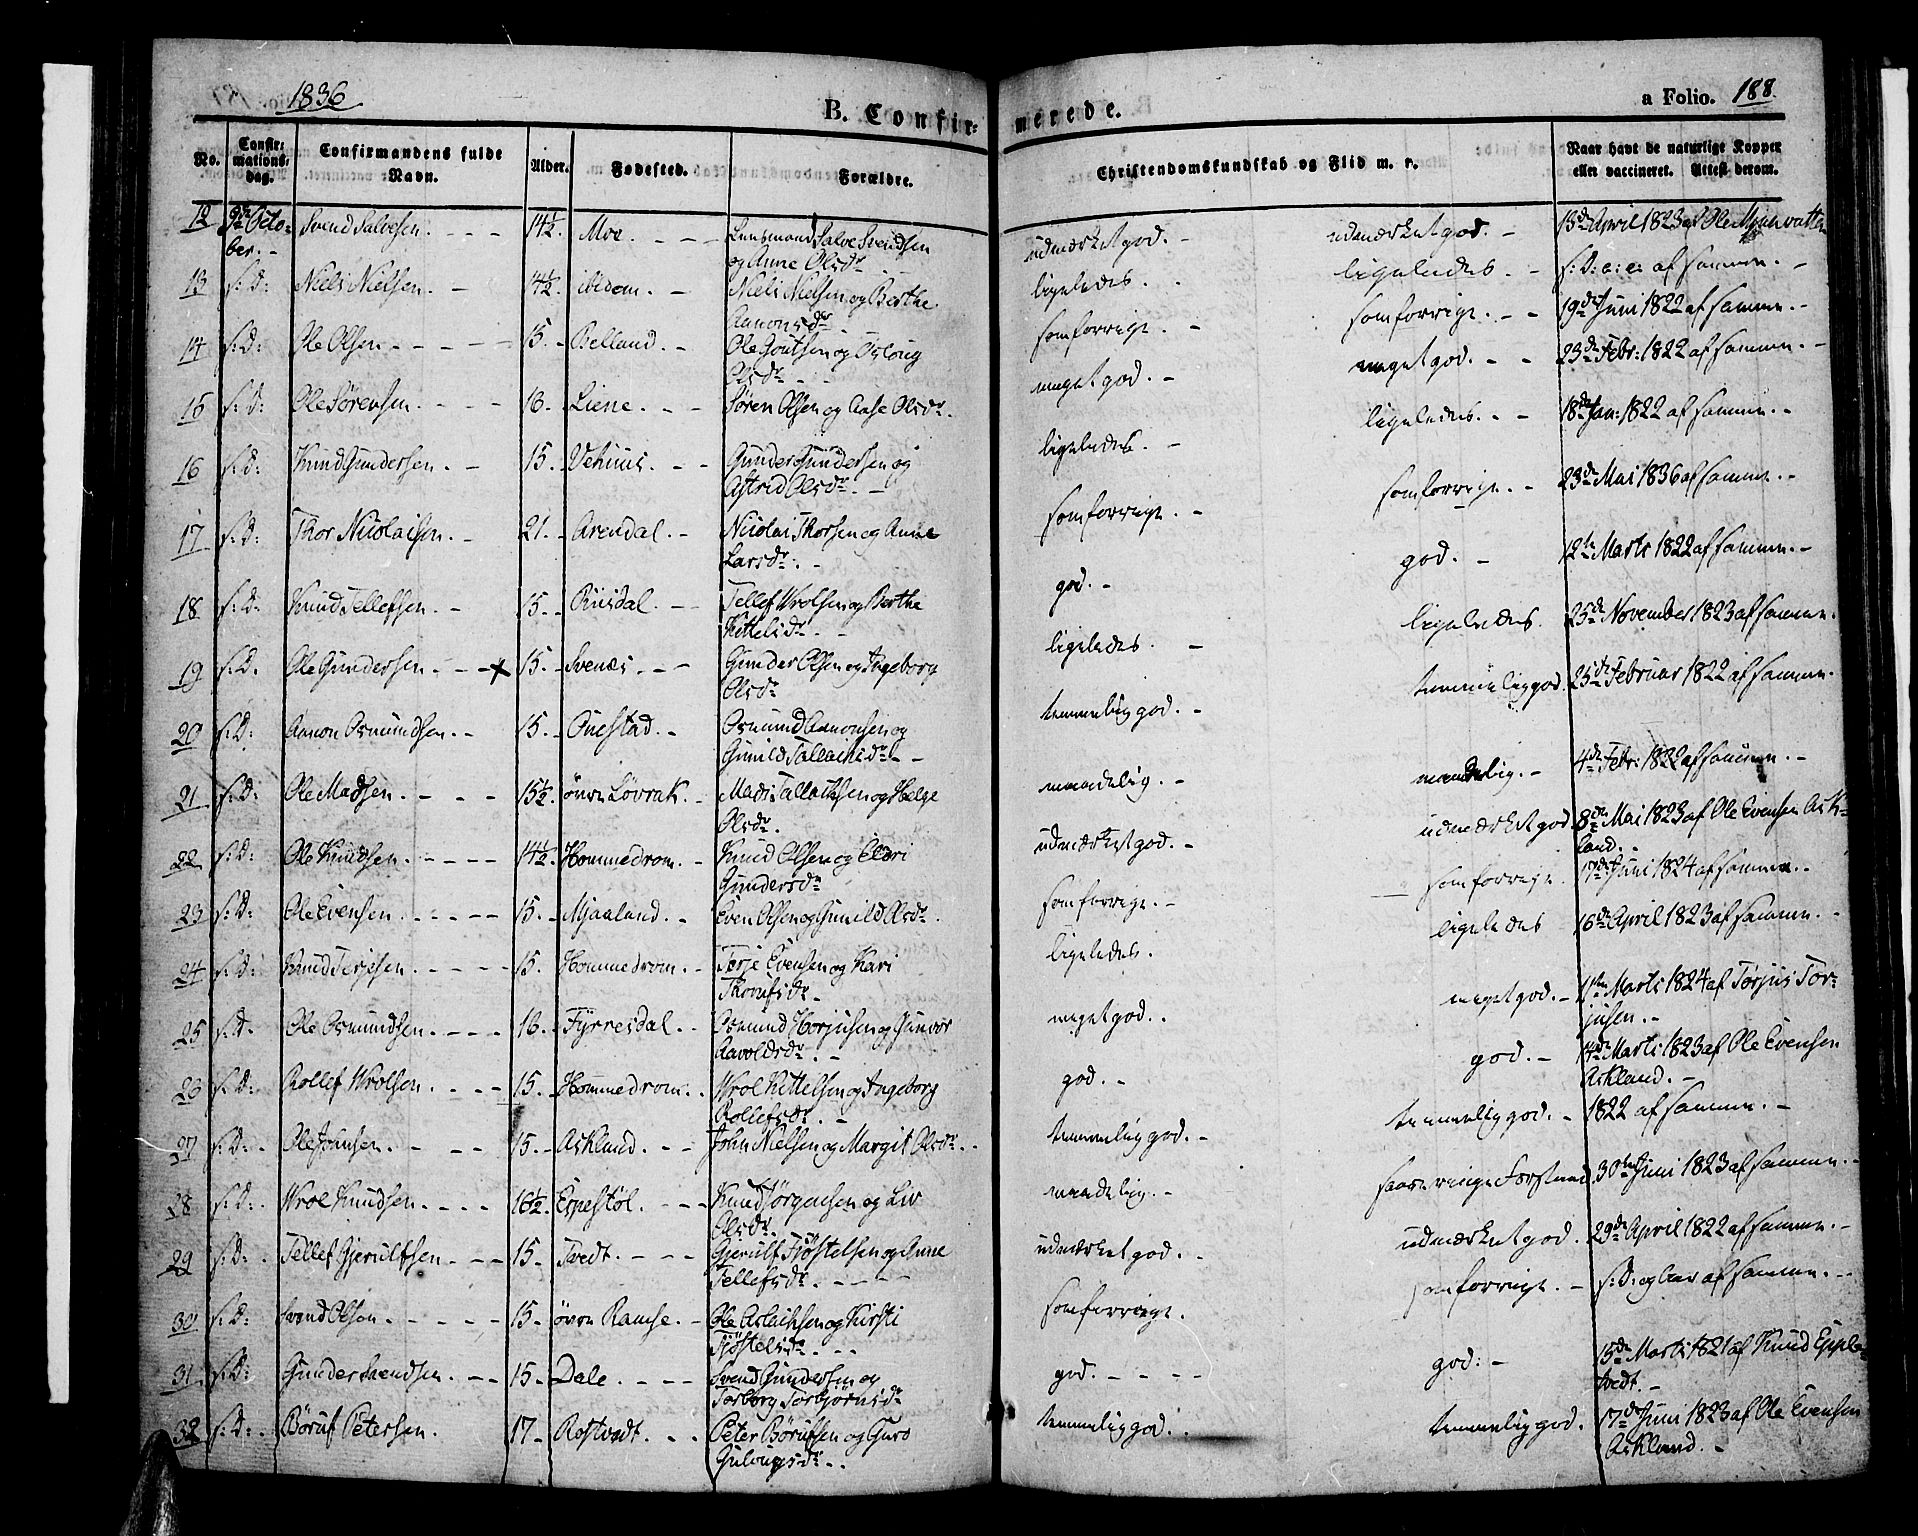 1836
B. Confir-
merede.
a Folio. 188
No.
Confir-
mations-
dag.
Confirmandens fulde
Navn.
Alder.
Fødested.
Forældre.
Christendomskundskab og Flid m. v.
Naar havt de naturlige Kopper
eller vaccineret. Attest derom.
12 9de Octo- Svend Salvesen. 14½. Moe. Lensmand Salve Svendsen udmærket god. udmærket god. 13de April 1823 af Ole
ber. og Anne Olsdr.
13 s: D: Niels Nielsen. 14½. ibidem. Niels Nielsen og Berthe ligeledes. ligeledes. s: D: e: c: af samme.
Aanonsdr.
14 s: D: Ole Olsen 15. Belland. Ole Goutsen og Osloug som forrige. som forrige. 19de Juni 1822 af samme.
Olsdr.
15 s: D: Ole Sørensen. 16. Liene. Søren Olsen og Aase Olsdr. meget god. meget god. 23de Febr: 1822 af samme.
16 s: D: Knud Gundersen. 15. Vehuus. Gunder Gundersen og ligeledes. ligeledes. 18de Jan: 1822 af samme.
Astrid Olsdr.
17 s: D: Thor Nicolaisen. 21. Arendal. Nicolai Thorsen og Anne som forrige. som forrige. 23de Mai 1836 af samme.
Larsdr.
18 s: D: Knud Tellefsen. 15. Riisdal. Tellef Wrolsen og Berthe god. god. 12te Marts 1822 af samme.
Kittelsdr.
19 s: D: Ole Gundersen. 15. Svenes. Gunder Olsen og Ingeborg ligeledes. ligeledes. 25de November 1823 af samme.
Olsdr.
20 s: D: Aanon Osmundsen. 15. Ouestad. Osmund Aanonsen og temmelig god. temmelig god. 25de Februar 1822 af samme.
Gunild Tallachsdr.
21 s: D: Ole Madsen. 15½. øvre Løvrak. Mads Tallachsen og Helge maadelig. maadelig. 4de Febr: 1822 af samme.
Olsdr.
22 s: D: Ole Knudsen. 14½. Hommedrom. Knud Olsen og Eldri udmærket god. udmærket god. 8de Mai 1823 af Ole Evensen Ask-
Gundersdr land.
23 s: D: Ole Evensen. 15. Mjaaland. Even Olsen og Gunild Olsdr. som forrige. som forrige. 17de Juni 1824 af samme.
24 s: D: Knud Terjesen. 15. Hommedrom. Terje Evensen og Kari ligeledes. ligeledes 16de April 1823 af samme.
25 s: D: Ole Osmundsen. 16. Fyrresdal. Osmund og Gunvor meget god. meget god. 11te Marts 1824 af Tørjus Tør-
Aavoldsdr. jusen.
26 s: D: Rollef Wrolsen. 15. Hommedrom. Wrol Kittelsen og Ingeborg god. god. 14de Marts 1823 af Ole Evensen
Rollefsdr. Askland.
27 s: D: Ole Johnsen. 15. Askland. John Nielsen og Margit Olsdr. temmelig god. temmelig god. 1822 af samme.
28 s: D: Wrol Knudsen. 16½. Espestøl. Knud Jørgensen og Liv maadelig. saare ringe Forstand 30te Juni 1823 af samme.
Olsdr.
29 s: D: Tellef Gjerulfsen. 15. Tvedt. Gjerulf Fjøstelsen og Anne udmærket god. udmærket god. 29de April 1822 af samme.
Tellefsdr.
30 s: D: Svend Olsen. 15. øvre Ramse. Ole Aslachsen og Kirsti som forrige. som forrige. s: D: og Aar af samme.
Fjøstelsdr.
31 s: D: Gunder Svendsen. 15. Dale. Svend Gundersen og god. god: 15de Marts 1821 af Knud Epple-
Torborg Torbjørnsdr tvedt.
32 s: D: Børuf Petersen. 17. Rostvedt. Peter Børufsen og Guro temmelig god. temmelig god. 17de Juni 1823 af Ole Evensen
Askland.